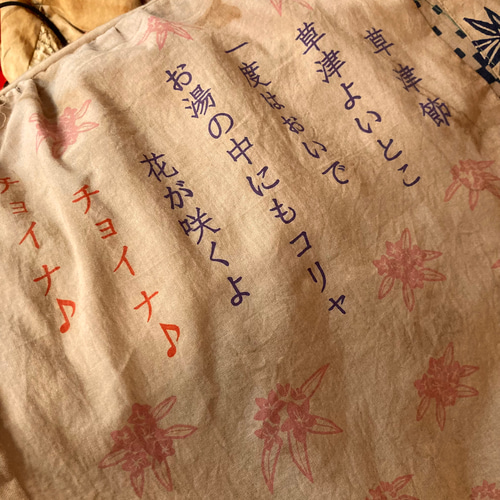 草津節
草津よいとこ
一度はおいで
お湯の中にもコリャ
花が咲くよ
チョイナ♪
チョイナ♪